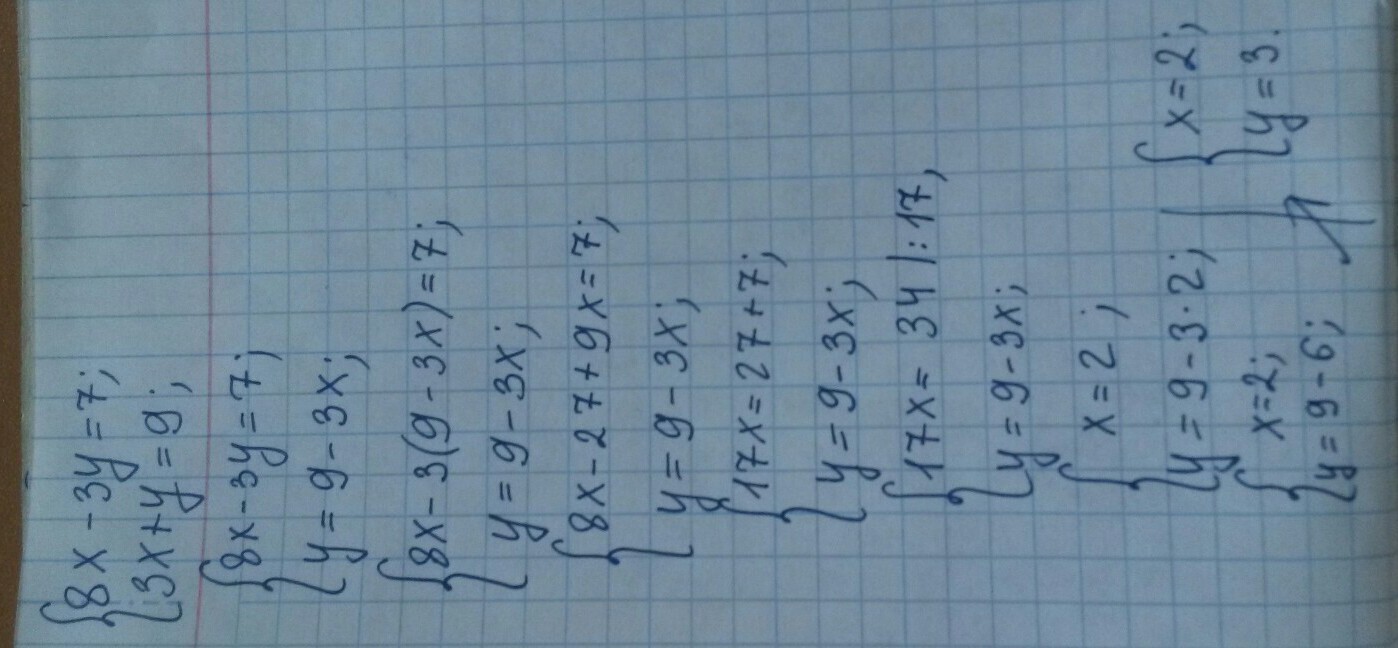 8x - 3y = 7;
3x + y = 9;
8x - 3y = 7;
y = 9 - 3x;
8x - 3(9 - 3x) = 7;
y = 9 - 3x;
8x - 27 + 9x = 7;
y = 9 - 3x;
17x = 27 + 7;
y = 9 - 3x;
17x = 34 |: 17,
y = 9 - 3x;
x = 2;
y = 9 - 3 · 2;
x = 2;
y = 9 - 6;
x = 2;
y = 3.